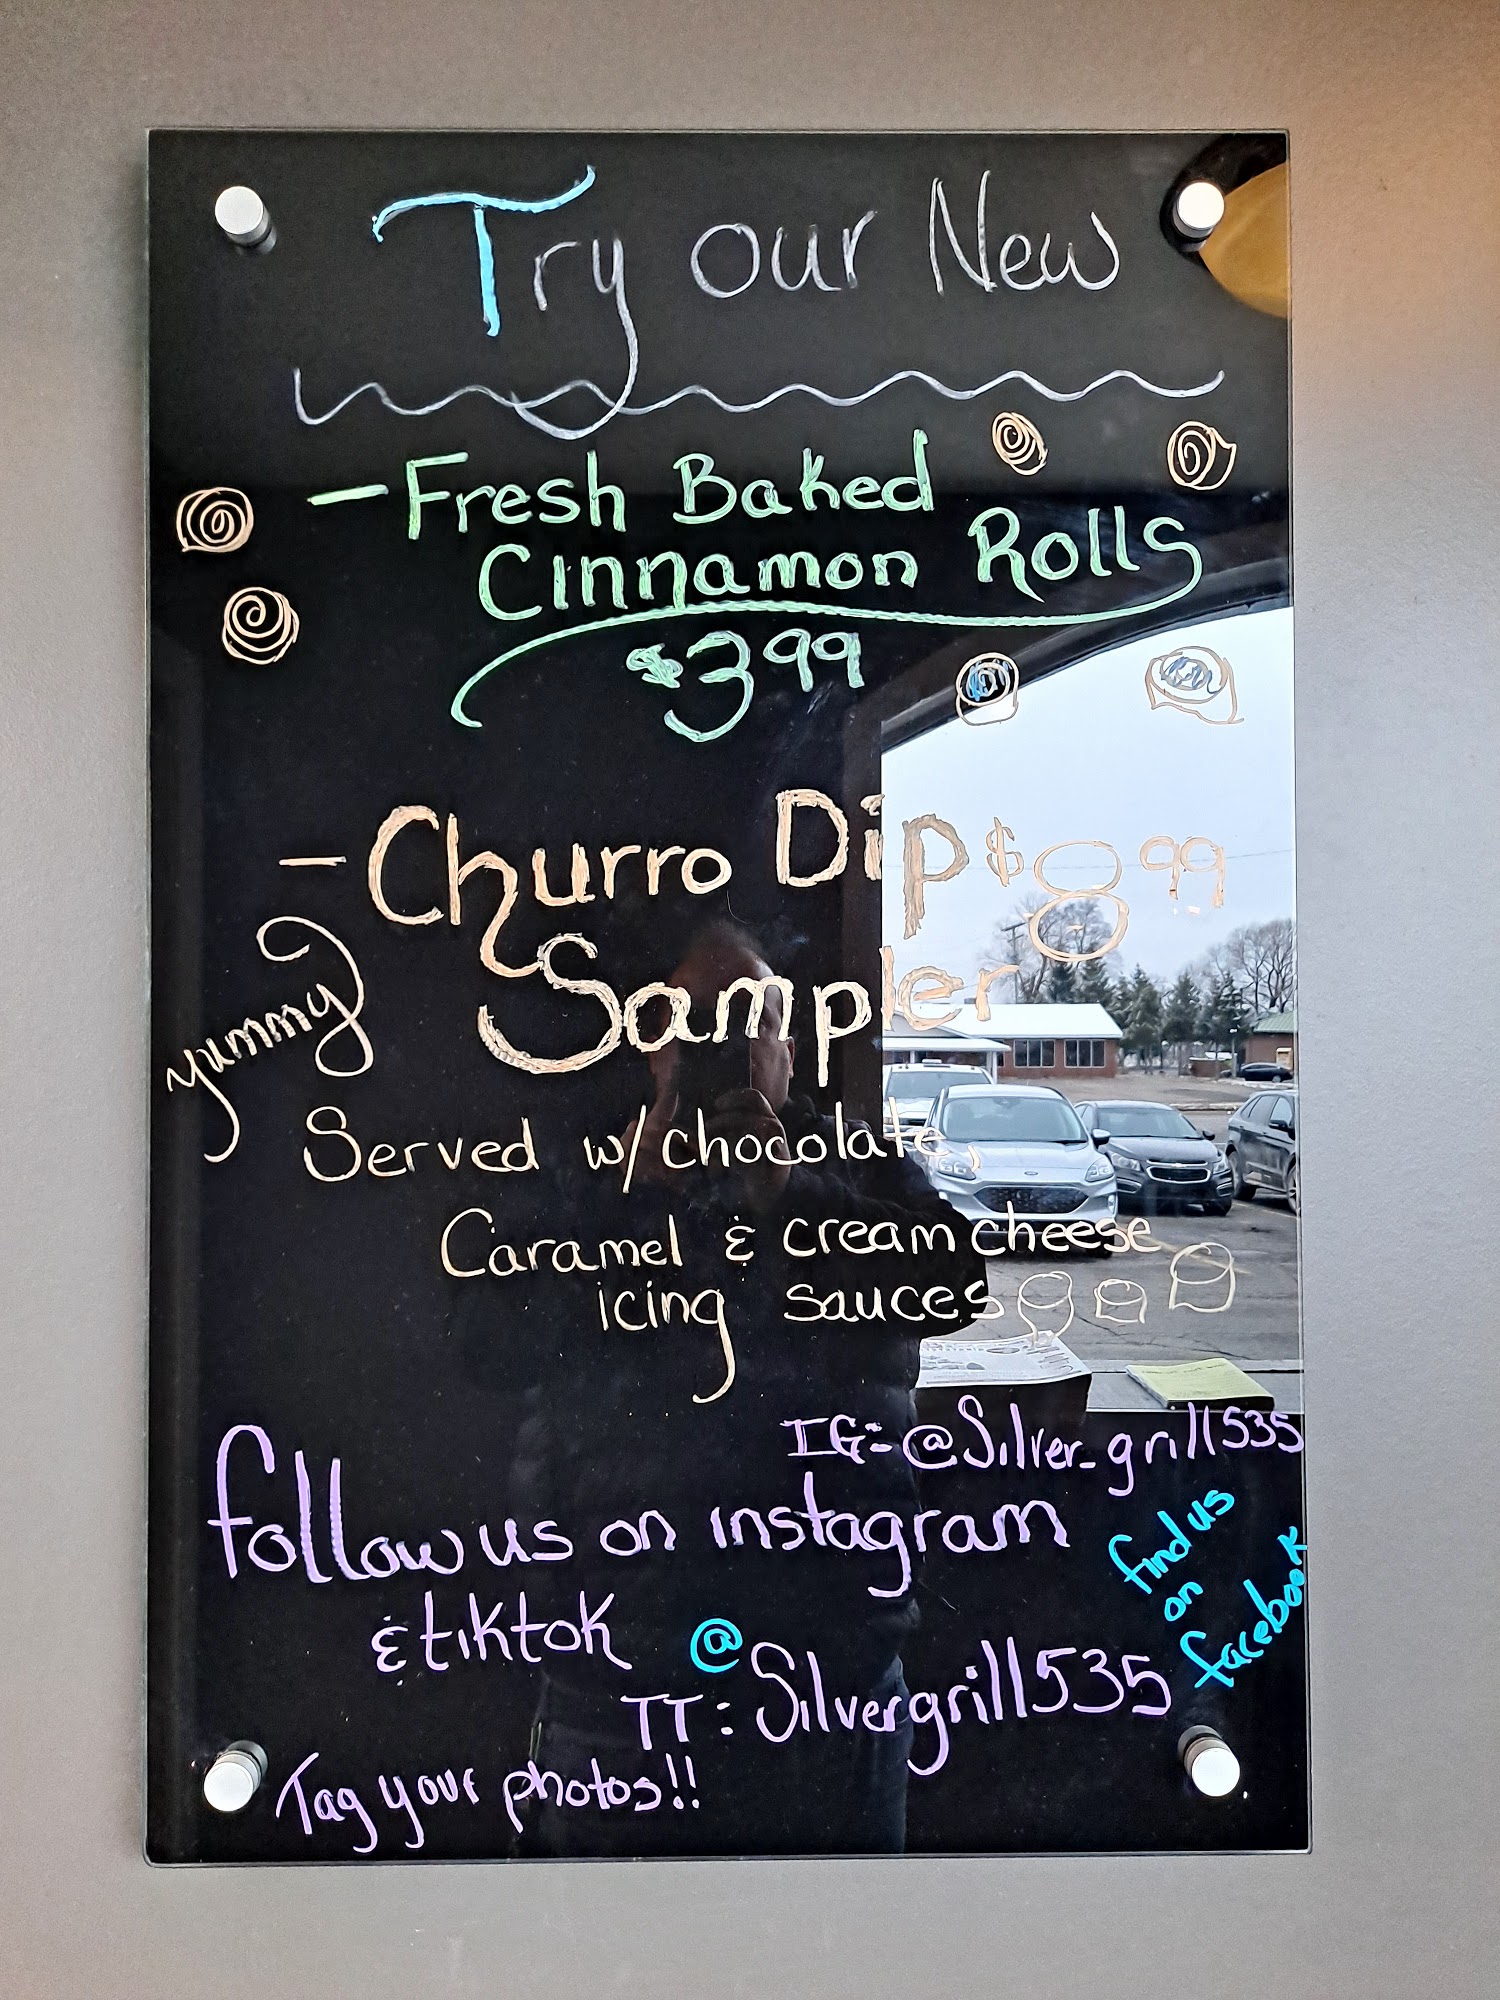 Try our New
- Fresh Baked
Cinnamon Rolls
$3.99
- Churro Dip $8.99
Sampler
yummy
Served w/ chocolate,
Caramel & cream cheese
icing sauces
IG: @Silver_grill535
follow us on instagram
& tiktok @
TT: Silvergrill535
find us
on
facebook
Tag your photos!!